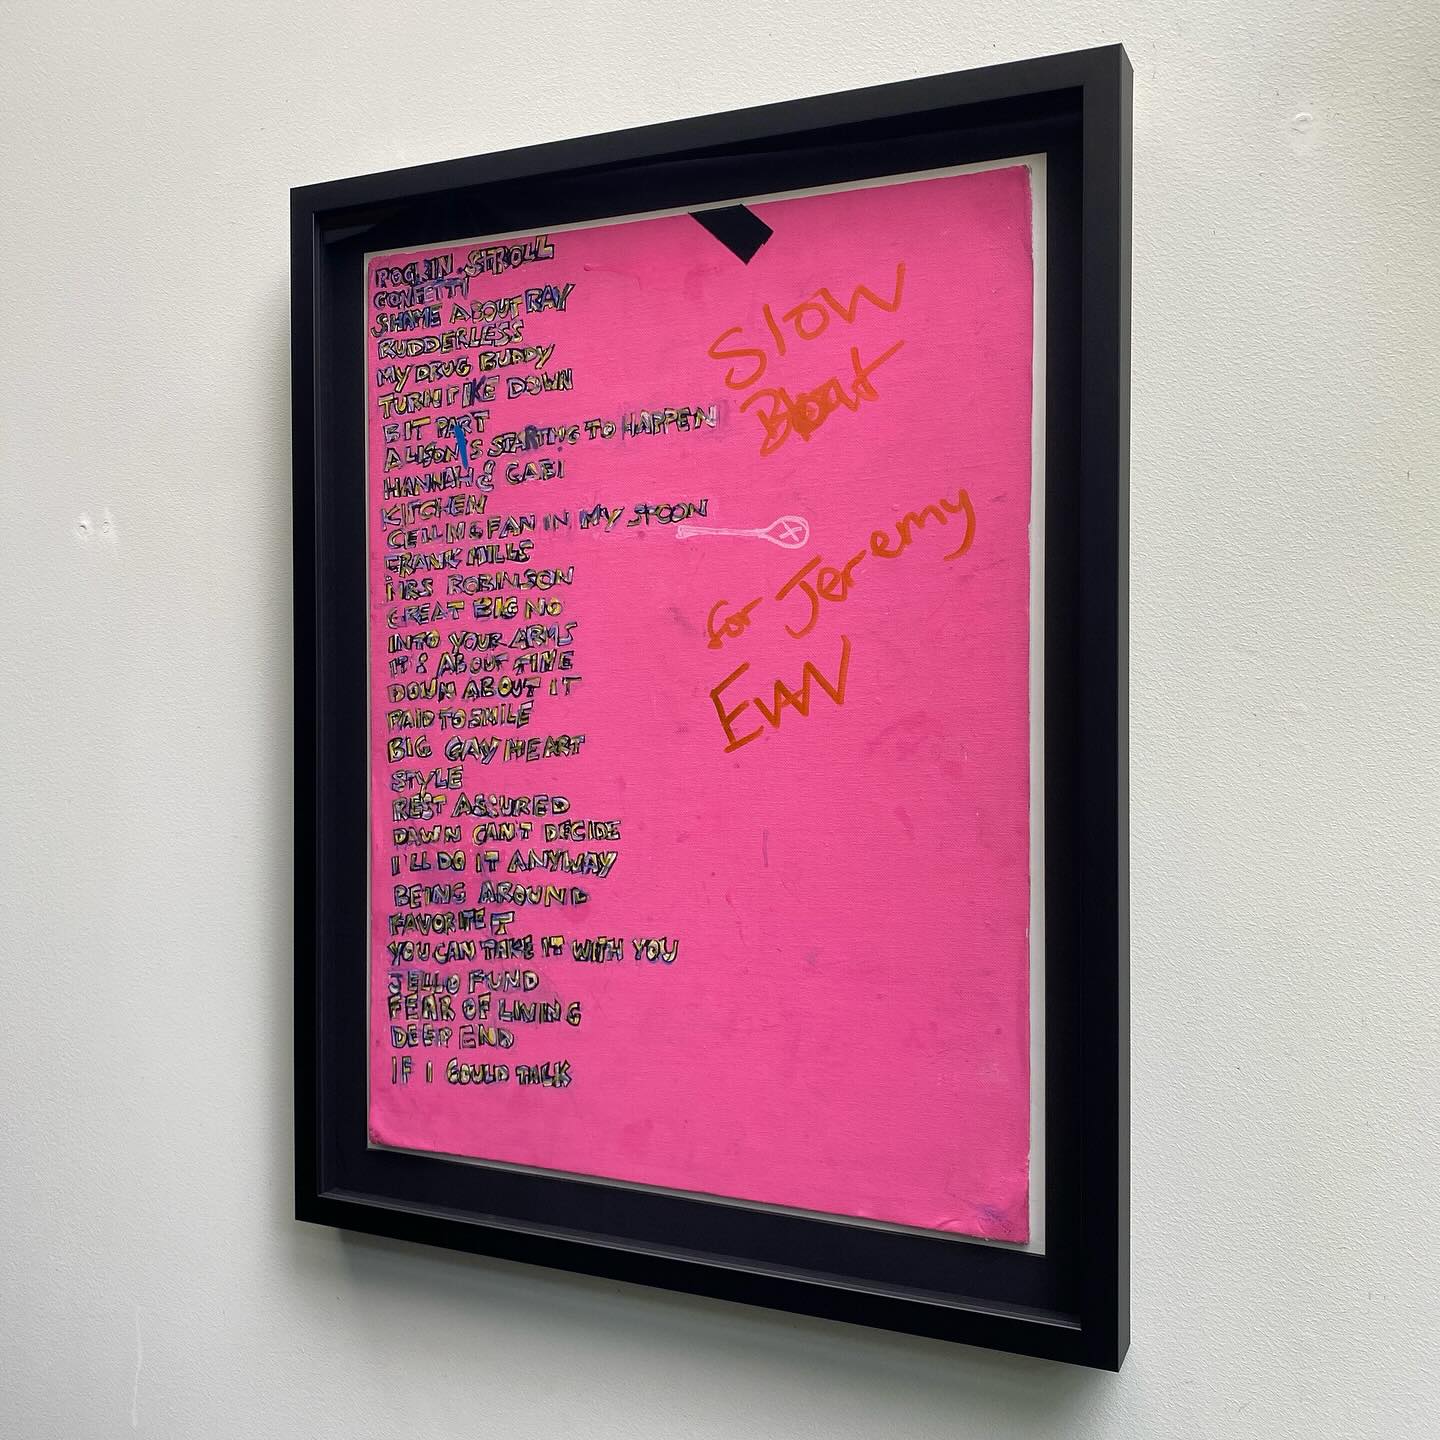 ROCKIN STROLL
CONFETTI
SHAME ABOUT RAY
RUDDERLESS
MY DRUG BUDDY
TURNPIKE DOWN
BIT PART
ALISON'S STARTING TO HAPPEN
HANNAH & GABI
KITCHEN
CEILING FAN IN MY SPOON
FRANK MILLS
MRS ROBINSON
GREAT BIG NO
INTO YOUR ARMS
IT'S ABOUT TIME
DOWN ABOUT IT
PAID TO SMILE
BIG GAY HEART
STYLE
REST ASSURED
DAWN CAN'T DECIDE
I'LL DO IT ANYWAY
BEING AROUND
FAVORITE T
YOU CAN TAKE IT WITH YOU
JELLO FUND
FEAR OF LIVING
DEEP END
IF I COULD TALK
Slow
Boat
for Jeremy
EVAN